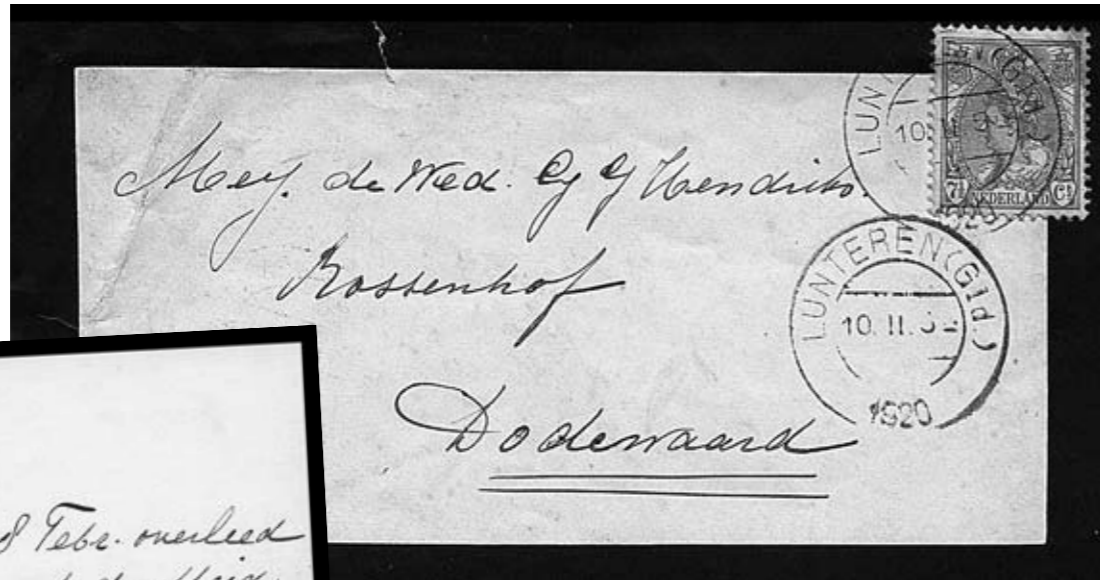 Mej. de Wed. G J Hendriks.
Rossenhof
Dodewaard
LUNTEREN (Gld.)
10. II.
1920
LUN
10
7½ NEDERLAND Ct
8 Febr. overleed